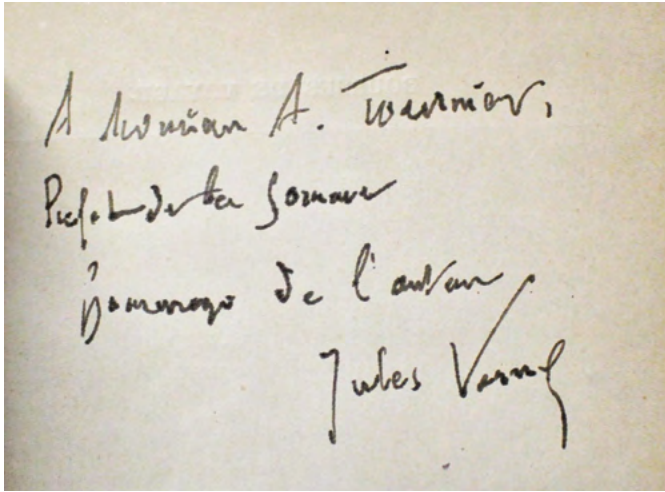 A Monsieur A. Tournier,
Préfet de la Somme
hommage de l'auteur
Jules Verne